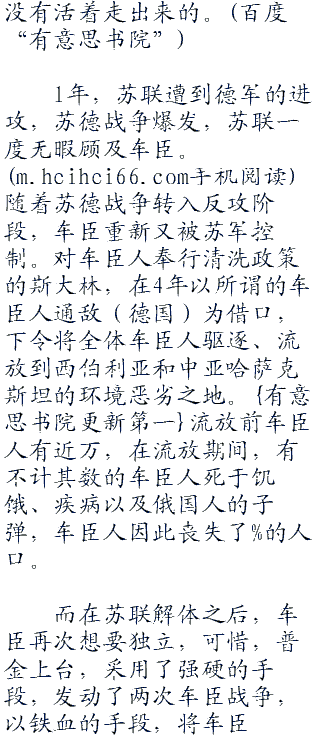 没有活着走出来的。(百度
“有意思书院”)
1年，苏联遭到德军的进
攻，苏德战争爆发，苏联一
度无暇顾及车臣。
(m.hcihci66.com手机阅读)
随着苏德战争转入反攻阶
段，车臣重新又被苏军控
制。对车臣人奉行清洗政策
的斯大林，在4年以所谓的车
臣人通敌（德国）为借口，
下令将全体车臣人驱逐、流
放到西伯利亚和中亚哈萨克
斯坦的环境恶劣之地。{有意
思书院更新第一}流放前车臣
人有近万，在流放期间，有
不计其数的车臣人死于饥
饿、疾病以及俄国人的子
弹，车臣人因此丧失了%的人
口。
而在苏联解体之后，车
臣再次想要独立，可惜，普
金上台，采用了强硬的手
段，发动了两次车臣战争，
以铁血的手段，将车臣